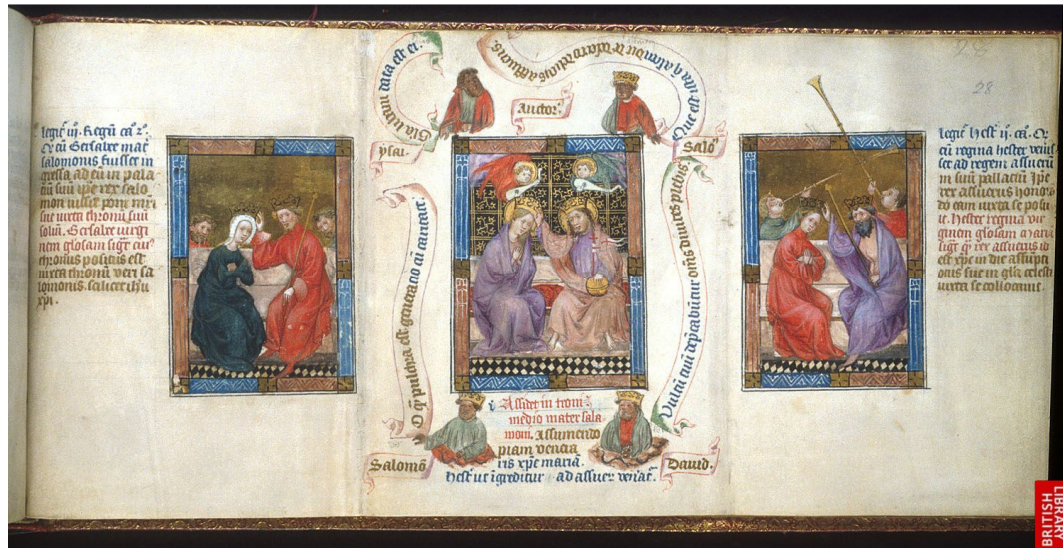 legit iij. Regū ca° 2°.
Qr cū Bersabee mat
salomonis fuisset in
gressa ad eū in pala
ciū suū ipe rex salo
mon iussit poni mri
sue iuxta thronū suū
soliū. Bersabee virgi
nem glosam sigt cui
thronus positus est
iuxta thronū veri sa
lomonis. scilicet ihu
xpi.
Gla libani data est ei.
ysai.
Auctor.
Que est ista q ascendit
Salo°
28
O qm pulchra est generacio cū caritate.
Salomō
Vultū tuū depcabūtur omēs diuites plebis
David.
v Assidet in trono
medio mater sala
moni. Assumendo
piam venera
ris xpe mariā.
Hest ut igreditur ad assuer venat.
legit hest ij. ca. Qr
cū regina hester venis
set ad regem assuerū
in suū pallaciū ipe
rex assuerus honorā
do eam iuxta se posu
it. Hester regina vir
ginem glosam mariā
sigt qm rex assuerus id
est xpe in die assumpti
onis sue in gla celesti
iuxta se collocauit.
BRITISH
LIBRARY